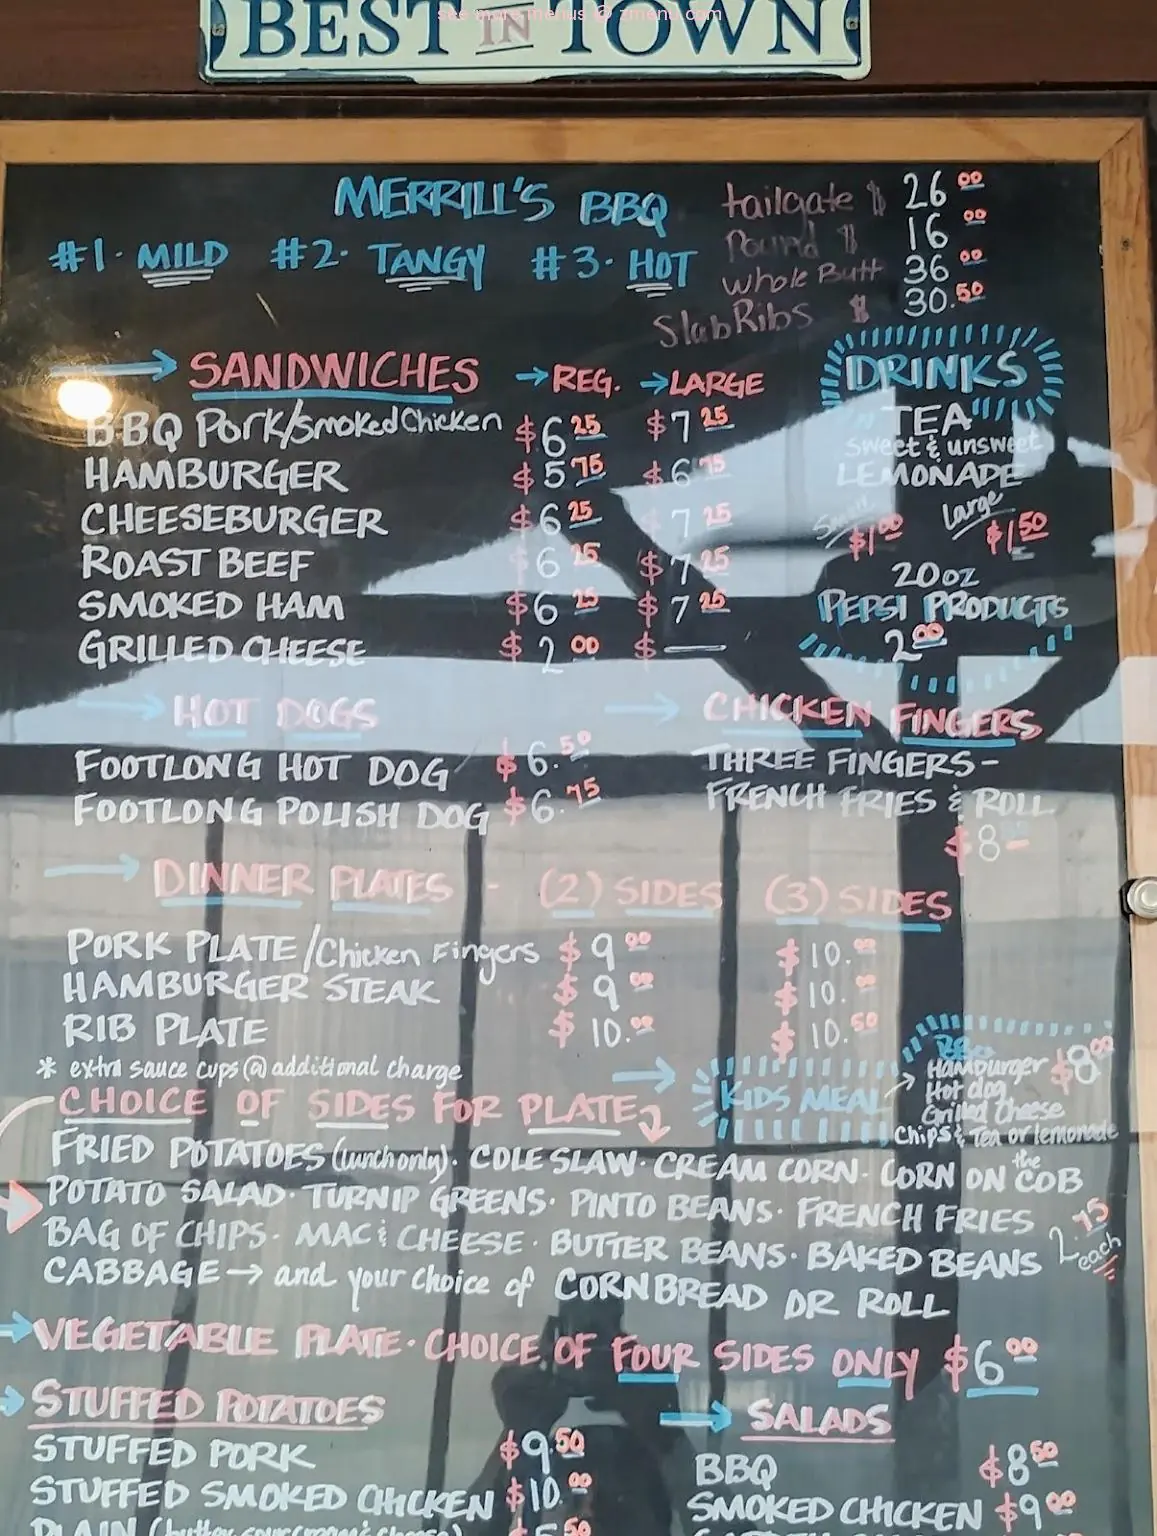 see more menus @ zmenu.com
BEST IN TOWN
MERRILL'S BBQ
#1. MILD #2. TANGY #3. HOT
tailgate $ 26 00
Pound $ 16 00
whole Butt 36 00
Slab Ribs $ 30.50
SANDWICHES → REG. → LARGE
BBQ Pork/Smoked Chicken $6 25 $7 25
HAMBURGER $5 75 $6 75
CHEESEBURGER $6 25 7 25
ROAST BEEF 6 25 $7 25
SMOKED HAM $6 25 $7 25
GRILLED CHEESE $2 00 $ —
DRINKS
TEA
sweet & unsweet
LEMONADE
Small Large
$1 00 $1 50
20oz
PEPSI PRODUCTS
2 00
→ HOT DOGS
FOOTLONG HOT DOG $6.50
FOOTLONG POLISH DOG $6.75
→ CHICKEN FINGERS
THREE FINGERS-
FRENCH FRIES & ROLL
$8
→ DINNER PLATES - (2) SIDES (3) SIDES
PORK PLATE/Chicken Fingers $9 00 $10.00
HAMBURGER STEAK $9 00 $10.00
RIB PLATE $10.00 $10.50
* extra sauce cups @ additional charge
→ KIDS MEAL
BBQ
Hamburger $8 00
Hot dog
Grilled Cheese
Chips & Tea or lemonade
CHOICE OF SIDES FOR PLATE
FRIED POTATOES (lunch only). COLE SLAW. CREAM CORN. CORN ON the COB
POTATO SALAD. TURNIP GREENS. PINTO BEANS. FRENCH FRIES
BAG OF CHIPS. MAC & CHEESE. BUTTER BEANS. BAKED BEANS
2.75 each
CABBAGE → and your choice of CORNBREAD OR ROLL
→ VEGETABLE PLATE. CHOICE OF FOUR SIDES ONLY $6 00
→ STUFFED POTATOES
STUFFED PORK $9.50
STUFFED SMOKED CHICKEN $10.00
PLAIN
→ SALADS
BBQ $8 50
SMOKED CHICKEN $9 00